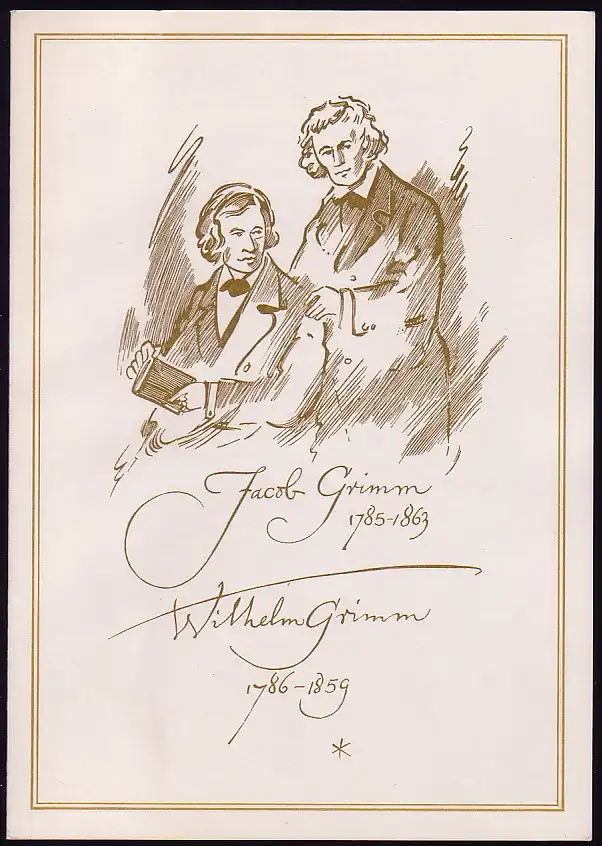 Jacob Grimm
1785-1863
Wilhelm Grimm
1786-1859
*